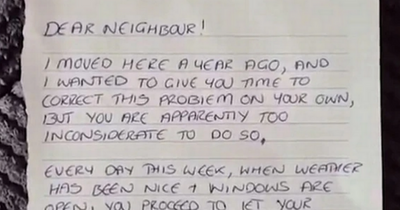 DEAR NEIGHBOUR!
I MOVED HERE A YEAR AGO, AND
I WANTED TO GIVE YOU TIME TO
CORRECT THIS PROBLEM ON YOUR OWN,
BUT YOU ARE APPARENTLY TOO
INCONSIDERATE TO DO SO,
EVERY DAY THIS WEEK, WHEN WEATHER
HAS BEEN NICE + WINDOWS ARE
OPEN, YOU PROCEED TO LET YOUR